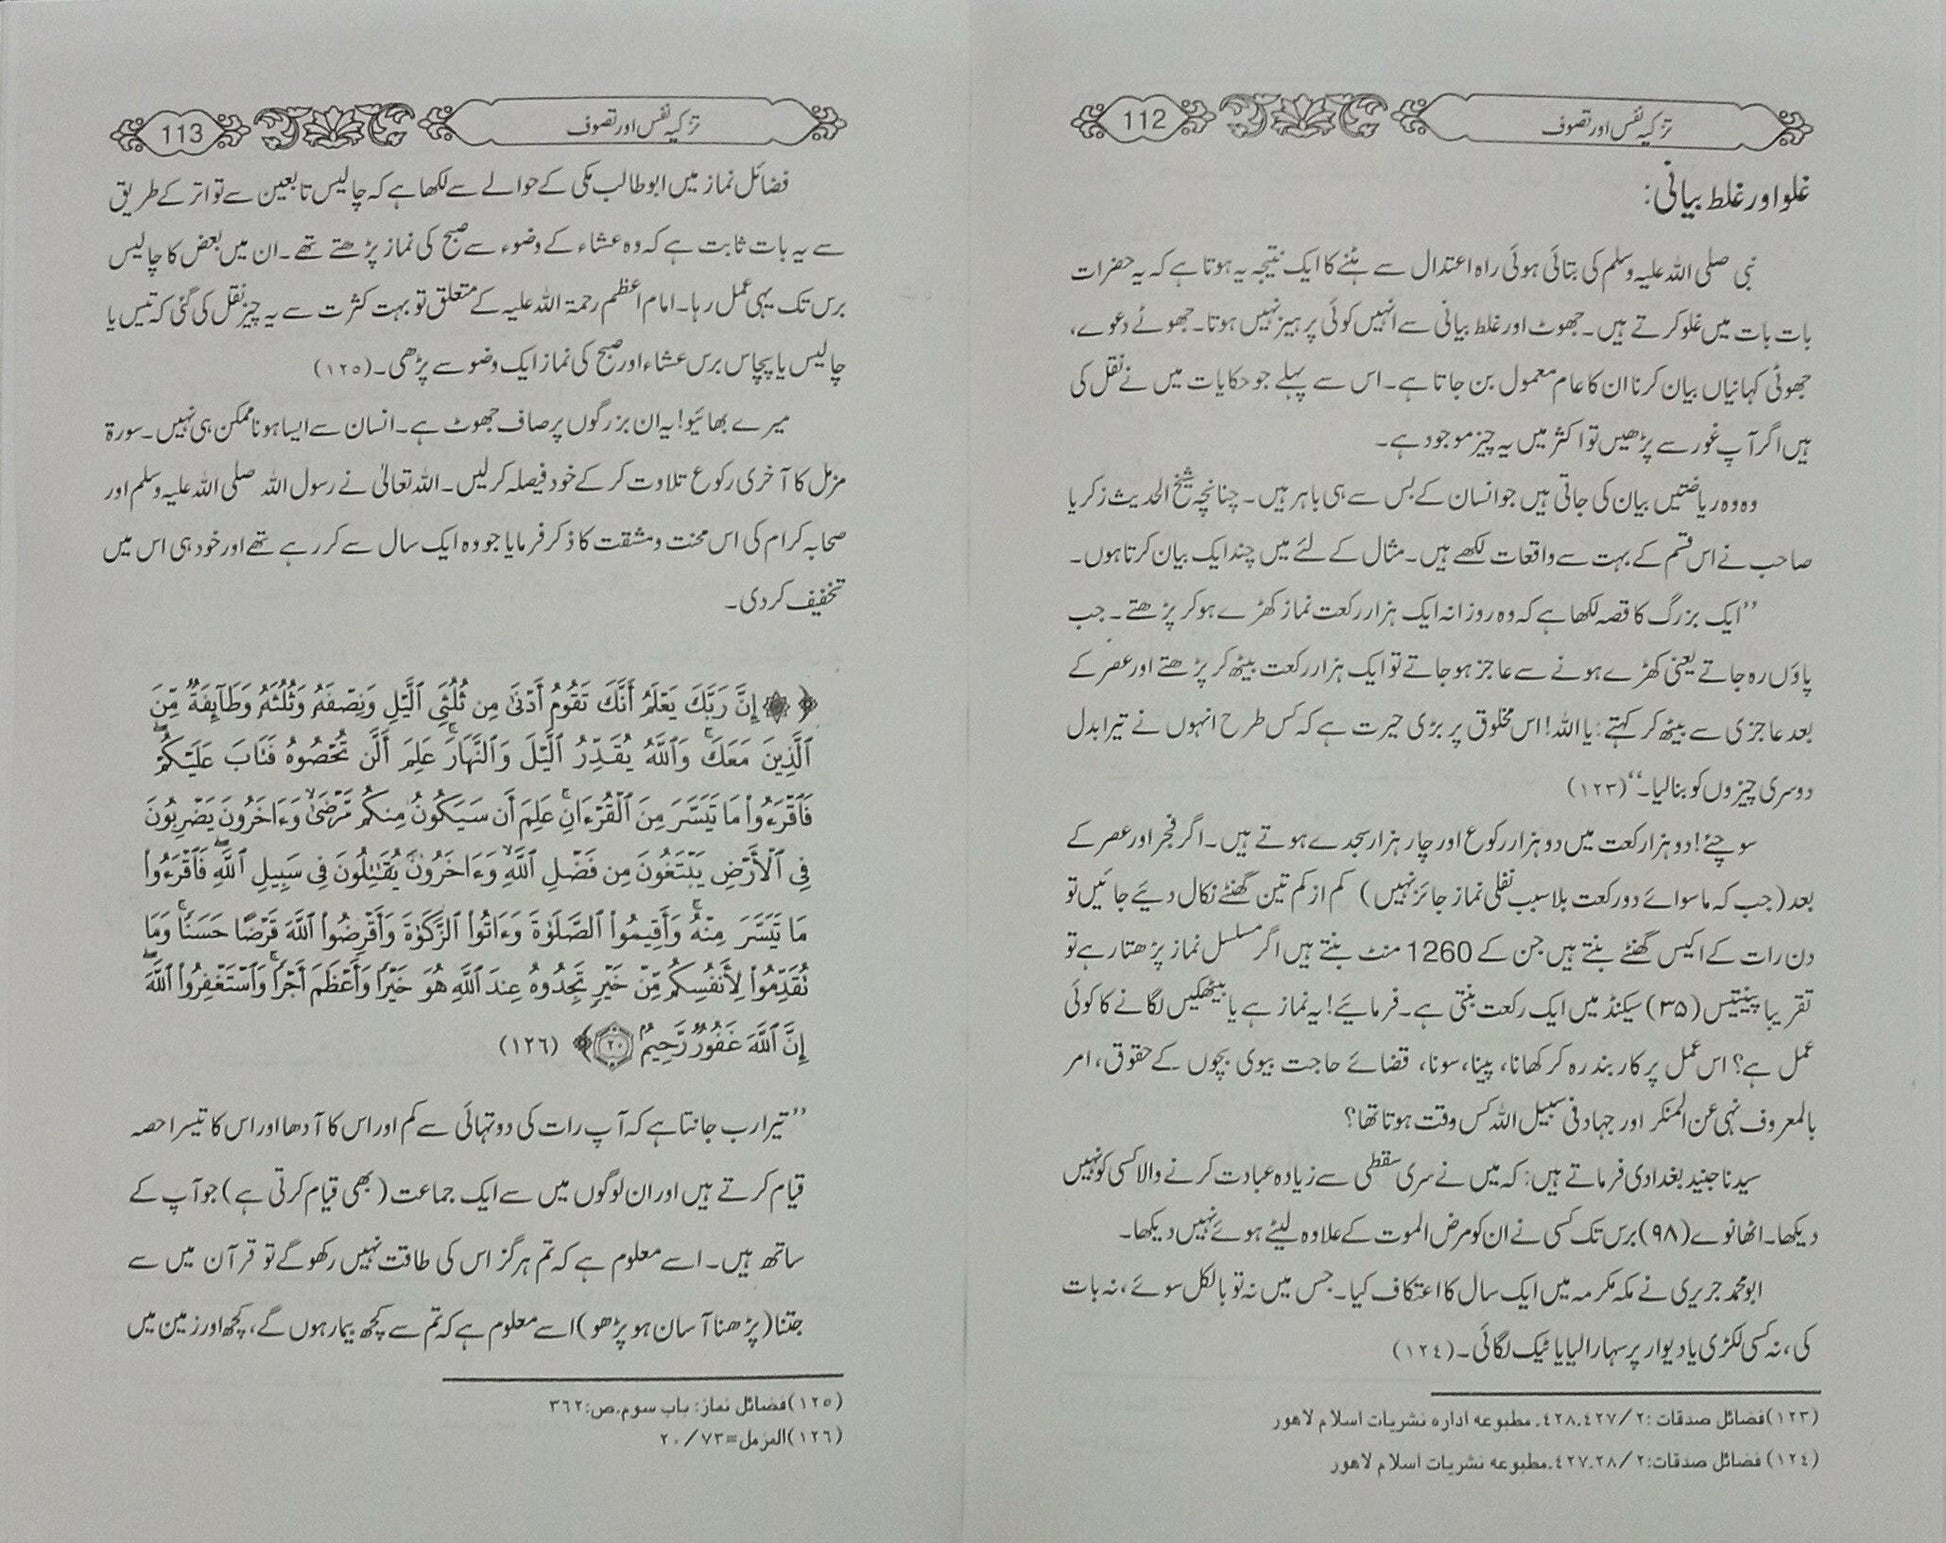 112
تزکیہ نفس اور تصوف
غلو اور غلط بیانی:
نبی صلی اللہ علیہ وسلم کی بتائی ہوئی راہ اعتدال سے ہٹنے کا ایک نتیجہ یہ ہوتا ہے کہ یہ حضرات
بات بات میں غلو کرتے ہیں۔ جھوٹ اور غلط بیانی سے انہیں کوئی پرہیز نہیں ہوتا۔ جھوٹے دعوے،
جھوٹی کہانیاں بیان کرنا ان کا عام معمول بن جاتا ہے۔ اس سے پہلے جو حکایات میں نے نقل کی
ہیں اگر آپ غور سے پڑھیں تو اکثر میں یہ چیز موجود ہے۔
وہ وہ ریاضتیں بیان کی جاتی ہیں جو انسان کے بس سے ہی باہر ہیں۔ چنانچہ شیخ الحدیث زکریا
صاحب نے اس قسم کے بہت سے واقعات لکھے ہیں۔ مثال کے لئے میں چند ایک بیان کرتا ہوں۔
’’ایک بزرگ کا قصہ لکھا ہے کہ وہ روزانہ ایک ہزار رکعت نماز کھڑے ہو کر پڑھتے۔ جب
پاؤں رہ جاتے یعنی کھڑے ہونے سے عاجز ہو جاتے تو ایک ہزار رکعت بیٹھ کر پڑھتے اور عصر کے
بعد عاجزی سے بیٹھ کر کہتے: یا اللہ! اس مخلوق پر بڑی حیرت ہے کہ کس طرح انہوں نے تیرا بدل
دوسری چیزوں کو بنا لیا۔‘‘ (١٢٣)
سوچئے! دو ہزار رکعت میں دو ہزار رکوع اور چار ہزار سجدے ہوتے ہیں۔ اگر فجر اور عصر کے
بعد (جب کہ ماسوائے دو رکعت بلا سبب نفلی نماز جائز نہیں) کم از کم تین گھنٹے نکال دیئے جائیں تو
دن رات کے اکیس گھنٹے بنتے ہیں جن کے 1260 منٹ بنتے ہیں اگر مسلسل نماز پڑھتا رہے تو
تقریبا پینتیس (۳۵) سیکنڈ میں ایک رکعت بنتی ہے۔ فرمائیے! یہ نماز ہے یا بیٹھکیں لگانے کا کوئی
عمل ہے؟ اس عمل پر کار بند رہ کر کھانا، پینا، سونا، قضائے حاجت بیوی بچوں کے حقوق، امر
بالمعروف نہی عن المنکر اور جہاد فی سبیل اللہ کس وقت ہوتا تھا؟
سیدنا جنید بغدادی فرماتے ہیں: کہ میں نے سری سقطی سے زیادہ عبادت کرنے والا کسی کو نہیں
دیکھا۔ اٹھانوے (۹۸) برس تک کسی نے ان کو مرض الموت کے علاوہ لیٹے ہوئے نہیں دیکھا۔
ابو محمد جریری نے مکہ مکرمہ میں ایک سال کا اعتکاف کیا۔ جس میں نہ تو بالکل سوئے، نہ بات
کی، نہ کسی لکڑی یا دیوار پر سہارا لیا یا ٹیک لگائی۔ (١٢٤)
(١٢٣) فضائل صدقات: ٢/٤٢٧،٤٢٨۔ مطبوعہ ادارہ نشریات اسلام لاہور
(١٢٤) فضائل صدقات: ٢/٤٢٧،٢٨۔ مطبوعہ نشریات اسلام لاہور
113
تزکیہ نفس اور تصوف
فضائل نماز میں ابو طالب مکی کے حوالے سے لکھا ہے کہ چالیس تابعین سے تواتر کے طریق
سے یہ بات ثابت ہے کہ وہ عشاء کے وضوء سے صبح کی نماز پڑھتے تھے۔ ان میں بعض کا چالیس
برس تک یہی عمل رہا۔ امام اعظم رحمۃ اللہ علیہ کے متعلق تو بہت کثرت سے یہ چیز نقل کی گئی کہ تیس یا
چالیس یا پچاس برس عشاء اور صبح کی نماز ایک وضو سے پڑھی۔ (١٢٥)
میرے بھائیو! یہ ان بزرگوں پر صاف جھوٹ ہے۔ انسان سے ایسا ہونا ممکن ہی نہیں۔ سورۃ
مزمل کا آخری رکوع تلاوت کر کے خود فیصلہ کر لیں۔ اللہ تعالیٰ نے رسول اللہ صلی اللہ علیہ وسلم اور
صحابہ کرام کی اس محنت و مشقت کا ذکر فرمایا جو وہ ایک سال سے کر رہے تھے اور خود ہی اس میں
تخفیف کر دی۔
﴿۞ إِنَّ رَبَّكَ يَعْلَمُ أَنَّكَ تَقُومُ أَدْنَىٰ مِن ثُلُثَىِ ٱلَّيْلِ وَنِصْفَهُۥ وَثُلُثَهُۥ وَطَآئِفَةٌ مِّنَ
ٱلَّذِينَ مَعَكَ ۚ وَٱللَّهُ يُقَدِّرُ ٱلَّيْلَ وَٱلنَّهَارَ ۚ عَلِمَ أَلَّن تُحْصُوهُ فَتَابَ عَلَيْكُمْ ۖ
فَٱقْرَءُوا۟ مَا تَيَسَّرَ مِنَ ٱلْقُرْءَانِ ۚ عَلِمَ أَن سَيَكُونُ مِنكُم مَّرْضَىٰ ۙ وَءَاخَرُونَ يَضْرِبُونَ
فِى ٱلْأَرْضِ يَبْتَغُونَ مِن فَضْلِ ٱللَّهِ ۙ وَءَاخَرُونَ يُقَٰتِلُونَ فِى سَبِيلِ ٱللَّهِ ۖ فَٱقْرَءُوا۟
مَا تَيَسَّرَ مِنْهُ ۚ وَأَقِيمُوا۟ ٱلصَّلَوٰةَ وَءَاتُوا۟ ٱلزَّكَوٰةَ وَأَقْرِضُوا۟ ٱللَّهَ قَرْضًا حَسَنًا ۚ وَمَا
تُقَدِّمُوا۟ لِأَنفُسِكُم مِّنْ خَيْرٍ تَجِدُوهُ عِندَ ٱللَّهِ هُوَ خَيْرًا وَأَعْظَمَ أَجْرًا ۚ وَٱسْتَغْفِرُوا۟ ٱللَّهَ ۖ
إِنَّ ٱللَّهَ غَفُورٌ رَّحِيمٌۢ ٢٠﴾ (١٢٦)
’’تیرا رب جانتا ہے کہ آپ رات کی دو تہائی سے کم اور اس کا آدھا اور اس کا تیسرا حصہ
قیام کرتے ہیں اور ان لوگوں میں سے ایک جماعت (بھی قیام کرتی ہے) جو آپ کے
ساتھ ہیں۔ اسے معلوم ہے کہ تم ہرگز اس کی طاقت نہیں رکھو گے تو قرآن میں سے
جتنا (پڑھنا آسان ہو پڑھو) اسے معلوم ہے کہ تم سے کچھ بیمار ہوں گے، کچھ اور زمین میں
(١٢٥) فضائل نماز: باب سوم، ص: ٣٦٢
(١٢٦) المزمل=٧٣/٢٠